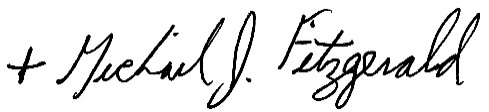 + Michael J. Fitzgerald